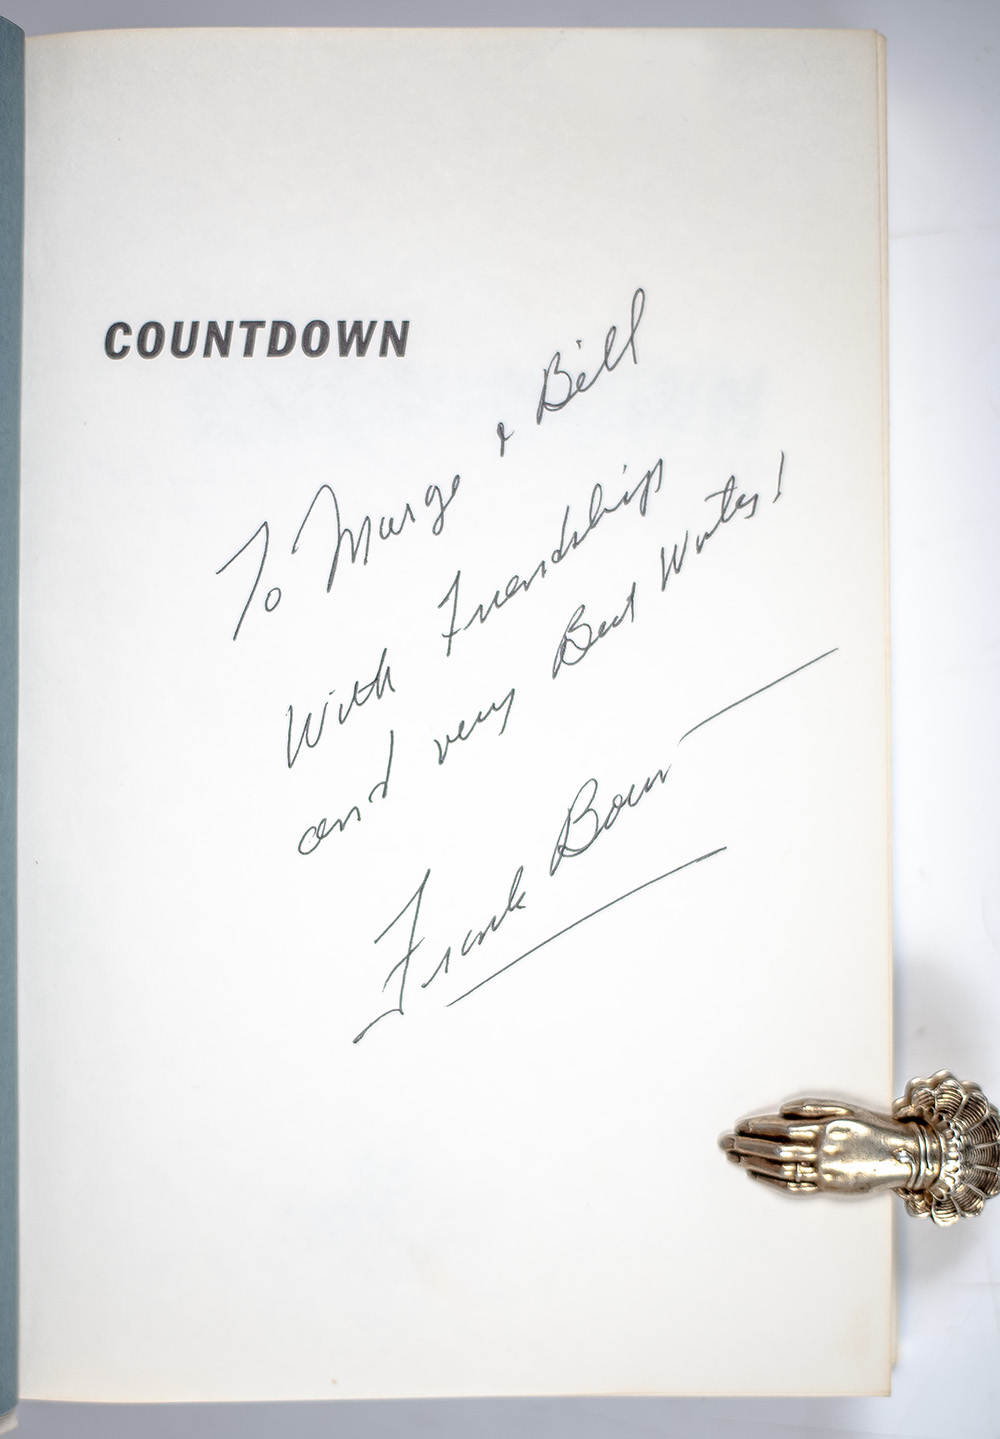 COUNTDOWN
To Marge & Bill
With Friendship
and very Best Wishes!
Frank Borman